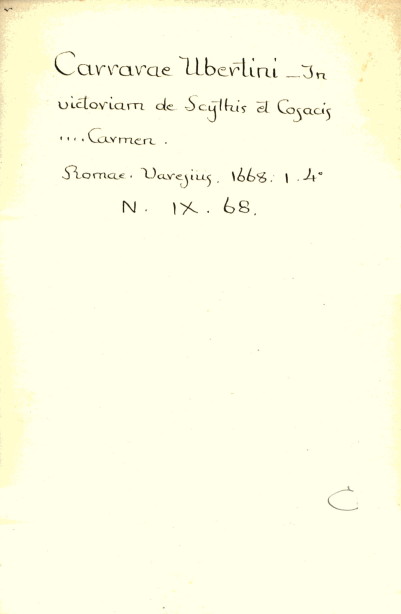 Carrarae Ubertini _ In
victoriam de Scÿthis et Cosacis
.... Carmen .
Romae. Varesius. 1668. 1. 4°
N. IX. 68.
C